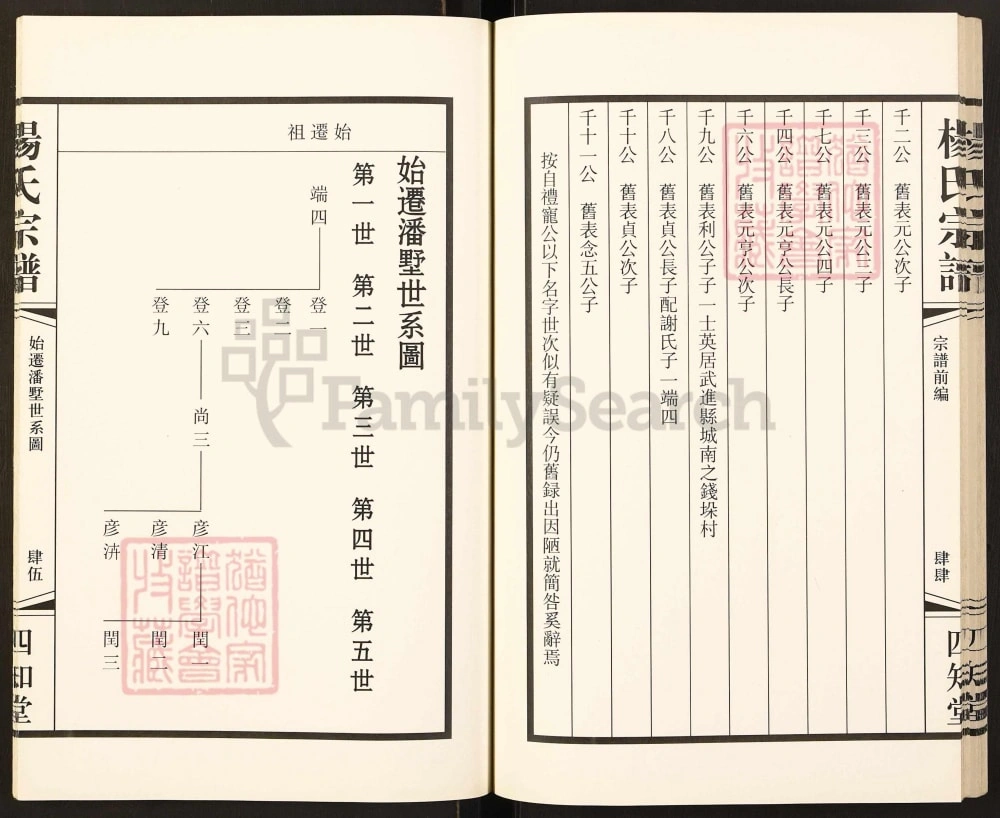 楊氏宗譜
宗譜前編
肆肆
四知堂
千二公 舊表元公次子
千三公 舊表元公三子
千七公 舊表元公四子
千四公 舊表元亨公長子
千六公 舊表元亨公次子
千九公 舊表利公子子一士英居武進縣城南之錢垛村
千八公 舊表貞公長子配謝氏子一端四
千十公 舊表貞公次子
千十一公 舊表念五公子
按自禮寵公以下名字世次似有疑誤今仍舊録出因陋就簡咎奚辭焉
始遷潘墅世系圖
第一世 第二世 第三世 第四世 第五世
始遷祖
端四
登一
登二
登三
登六
登九
尚三
彦江
彦清
彦洴
閏一
閏二
閏三
楊氏宗譜
始遷潘墅世系圖
肆伍
四知堂
FamilySearch